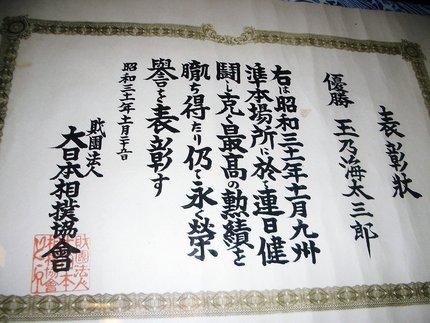 表彰状
優勝 玉乃海太三郎
右は昭和三十一年十一月九州
準本場所に於て連日健
闘し克く最高の勲績を
贏ち得たり仍て永く栄
誉を表彰す
昭和三十一年十一月二十五日
財團法人
大日本相撲協會